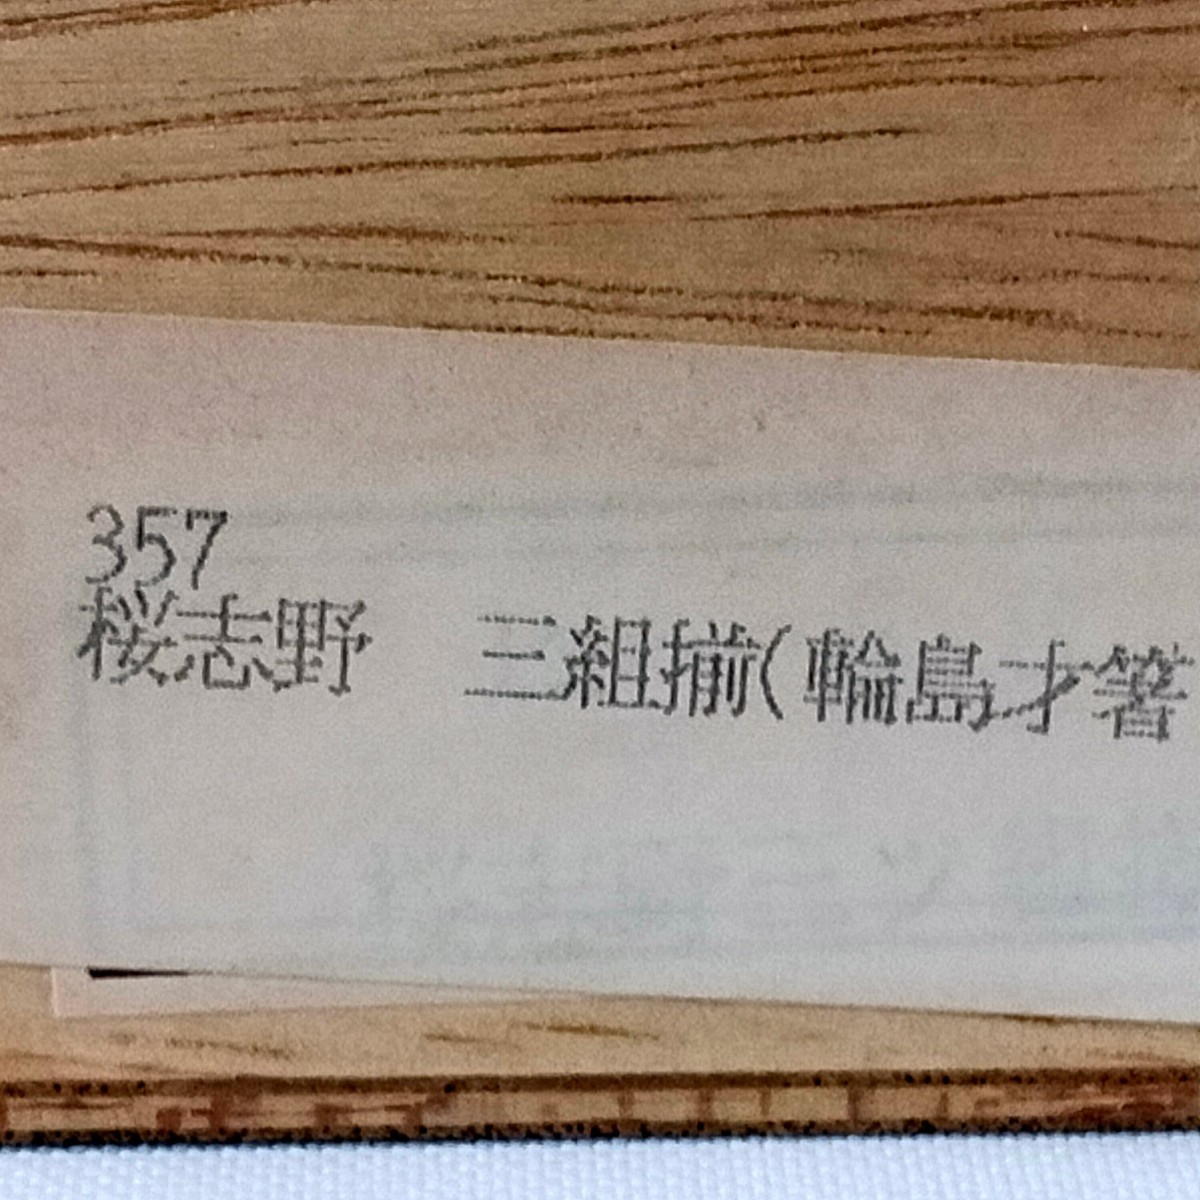 357
桜志野　三組揃(輪島才箸